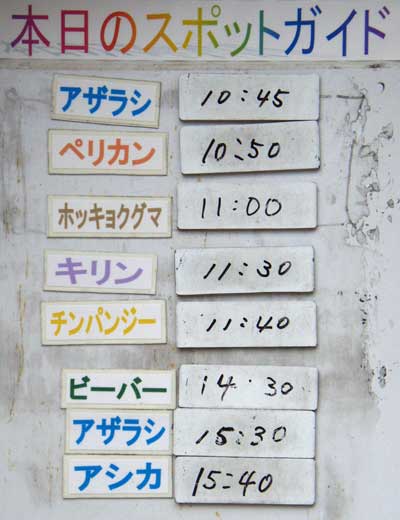 本日のスポットガイド
アザラシ 10:45
ペリカン 10:50
ホッキョクグマ 11:00
キリン 11:30
チンパンジー 11:40
ビーバー 14:30
アザラシ 15:30
アシカ 15:40